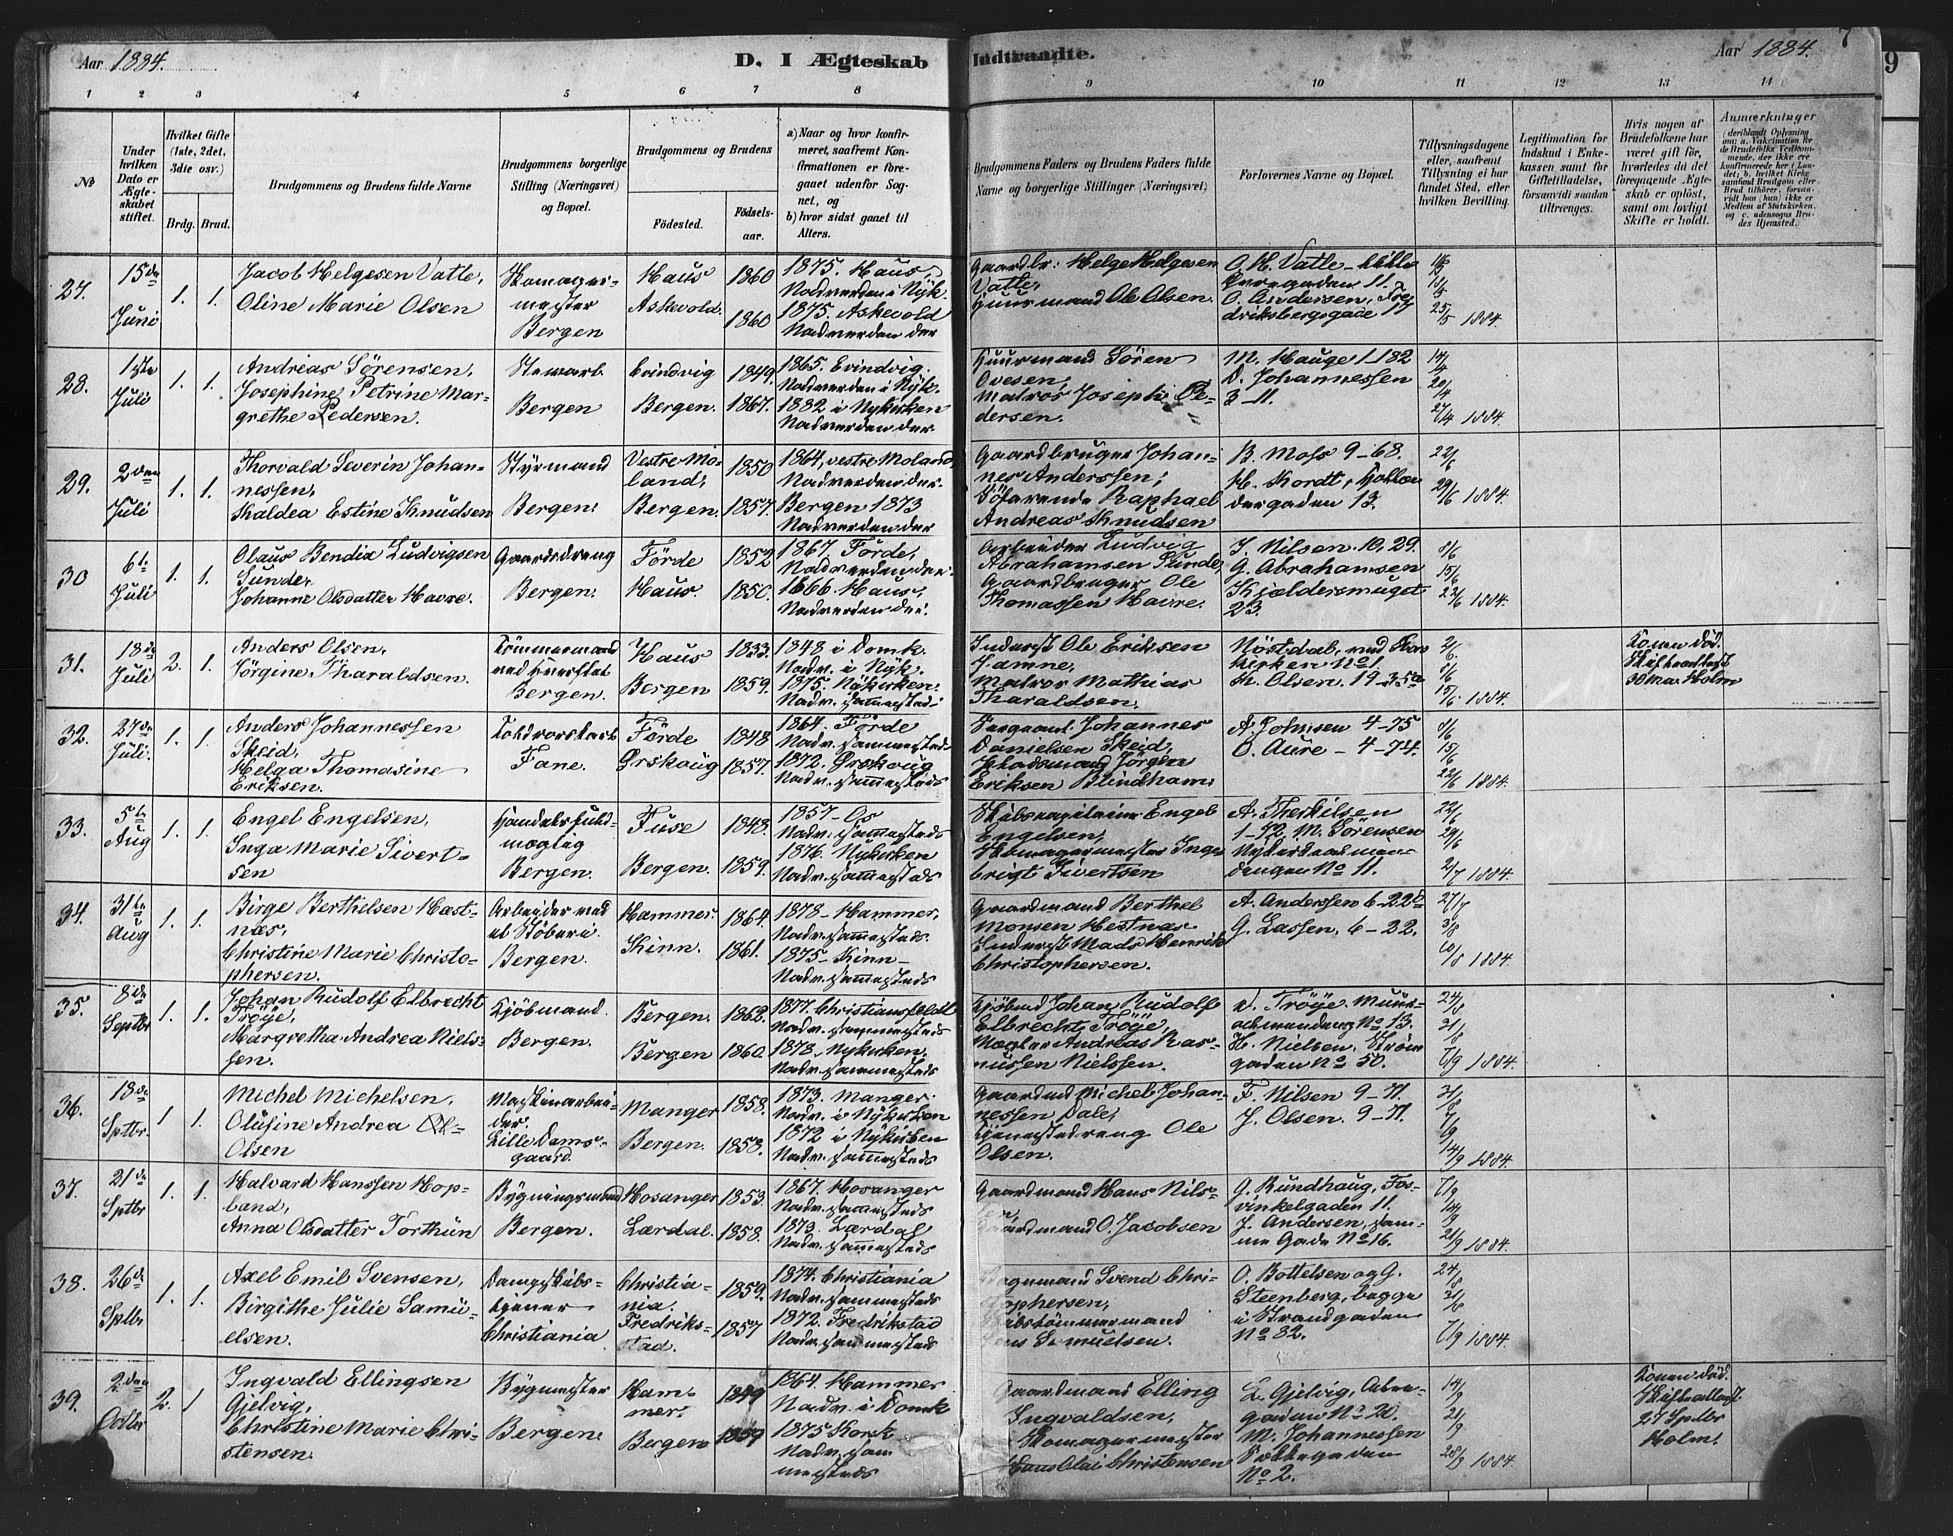 Aar 1884.
D. I Ægteskab
Indtraadte.
Aar 1884.
7
9
1 2 3 4 5 6 7 8 9 10 11 12 13 14
No
Under hvilken Dato er Ægteskabet stiftet.
Hvilket Gifte (1ste, 2det, 3die osv.)
Brdg. Brud.
Brudgommens og Brudens fulde Navne
Brudgommens borgerlige Stilling (Næringsvei) og Bopæl.
Brudgommens og Brudens
Fødested. Fødselsaar.
a) Naar og hvor konfirmeret, saafremt Konfirmationen er foregaaet udenfor Sognet, og
b) hvor sidst gaaet til Alters.
Brudgommens Faders og Brudens Faders fulde Navne og borgerlige Stillinger (Næringsvei)
Forlovernes Navne og Bopæl.
Tillysningsdagene eller, saafremt Tillysning ei har fundet Sted, efter hvilken Bevilling.
Legitimation for Indskud i Enkekassen samt for Giftetilladelse, forsaavidt saadan tiltrænges.
Hvis nogen af Brudefolkene har været gift før, hvorledes da det foregaaende Ægteskab er opløst, samt om lovligt Skifte er holdt.
Anmærkninger
27. 15de Juni 1. 1.
Jacob Helgesen Vatle,
Oline Marie Olsen
Skomagermester
Bergen
Haus 1860
Askevold. 1860
1875. Haus,
Nadverden i Nyk.
1875. Askevold
Nadverden der
Gaardbr: Helge Helgesen
Vatle,
Huusmand Ole Olsen.
O. H. Vatle
11.
O. Andersen, Fre
driksbergsgade 17
25/5 1884.
28. 1ste Juli 1. 1.
Andreas Sörensen,
Josephine Petrine Mar-
grethe Pedersen.
Bergen
Evindvig 1849.
Bergen. 1867.
1865. Evindvig.
Nadverden i Nyk.
1882 i Nykirken
Nadverden der
Huusmand Sören
Ovesen,
Matros Joseph Pe-
dersen.
M. Hauge 1182
D. Johannessen
3-11.
14/4
20/4
27/4 1884.
29. 2den Juli 1. 1.
Thorvald Severin Johan-
nessen,
Thaldea Estine Knudsen
Styrmand
Bergen.
Vestre Mo-
land, 1850
Bergen. 1857.
1864, vestre Moland,
Nadverden der.
Bergen 1873
Nadverden der
Gaardbruger Johan-
nes Anderssen,
Söfarende Raphael
Andreas Knudsen
B. Moss 9-68.
H. Kordt, Hollæn
dergaden 13.
22/6
29/6 1884.
30 6te Juli 1. 1.
Olaus Bendix Ludvigsen
Sunde,
Johanne Olsdatter Havre.
Gaardsdreng
Bergen.
Förde 1852
Haus. 1850.
1867. Förde,
Nadverden der.
1866 Haus,
Nadverden der.
Arbeider Ludvig
Abrahamsen Sunde,
Gaardbruger Ole
Thomassen Havre.
J. Nilsen. 10, 29.
G. Abrahamsen
Kjeldersmuget
23.
8/6
15/6
22/6 1884.
31. 18de Juli 2. 1.
Anders Olsen,
Jörgine Tharaldsen.
Tömmermand
Bergen.
Haus 1833.
Bergen 1859.
1848 i Domk.
Nadv. i Nyk.
1875 Nykirken.
Nadv. sammesteds
Inderst Ole Eriksen
Jamne,
Matros Mathias
Tharaldsen.
kirken No 1.
K. Olsen. 19
2/6.
8/6
15/6. 1884.
Konen död.
Skifteattest
30 Mai Holm
32. 27de Juli. 1. 1.
Anders Johannessen
Skeid,
Helga Thomasine
Eriksen.
Fane.
Förde 1848
Ørskoug 1857.
1864. Förde
Nadv. sammesteds
1872. Ørskoug
Nadv. sammesteds
Sergeant Johannes
Danielsen Skeid,
Pladsmand Jörgen
Eriksen Blindheim.
A. Johnsen 4-75
O. Aure - 4-74.
8/6
15/6
22/6 1884.
33. 5te Aug 1. 1.
Engel Engelsen,
Inga Marie Sivert-
sen
Handelsfuld-
mægtig
Bergen.
Fuse 1848.
Bergen. 1859.
1857 - Os
Nadv. sammesteds
1876. Nykirken
Nadv. sammesteds
Skibscapitaine Engel
Engelsen,
Skomagermester Inge
brigt Sivertsen
A. Therkilsen
1-42, M. Sörensen
No 11.
22/6
29/6
2/7 1884.
34. 31te Aug 1. 1.
Birge Berthelsen Hæst-
næs,
Christine Marie Christo-
phersen.
Arbeider ved
et Støberi.
Bergen.
Hammer. 1864.
Kinn. 1861.
1878 - Hammer,
Nadv. sammesteds.
1875 - Kinn -
Nadv. sammesteds
Gaardmand Berthel
Monsen Hestnæs
Inderst Mads Henrik
Christophersen.
A. Anderssen 6-22
G. Lassen, 6-22.
27/7
3/8
10/8 1884.
35. 8de Septbr 1. 1.
Johan Rudolf Elbrecht
Tröye,
Margretha Andrea Niels-
sen.
Kjöbmand.
Bergen.
Bergen. 1862.
Bergen 1860.
1877. Christiansfeldt
Nadv. sammesteds
1878. Nykirken.
Nadv. sammesteds
Kjöbmd Johan Rudolf
Elbrecht Tröye,
Mægler Andreas Ras-
mussen Nielssen.
Tröye. Munke-
No 13.
H. Nielsen, Ström
gaden No 50.
24/8
31/8
7/9 1884.
36. 18de Sptbr. 1 1.
Michel Michelsen,
Olufine Andrea Ol-
Olsen
Maskinarbei-
der.
Lille Dams-
gaard.
Manger 1858.
Bergen. 1858.
1873. Manger.
Nadv. i Nykirken
1872 i Nykirken
Nadv. sammesteds
Gaardmd Michel Johan-
nessen Dale,
Tjenestedreng Ole
Olsen.
F. Nilsen 9-71.
J. Olsen. 9-71.
31/8
7/9
14/9 1884.
37. 21de Sptbr 1. 1.
Halvard Hanssen Hop-
land,
Anna Olsdatter Torthun
Bygningsmand
Bergen.
Hosanger 1853.
Lærdal. 1858.
1867. Hosanger
Nadv. sammesteds
1873. Lærdal
Nadv. sammesteds
Gaardmand Hans Nils-
sen,
Gaardmand O. Jacobsen
G. Rundhaug, Fos-
vinkelgaden 11.
J. Andersen, sam-
me Gade No 16.
7/9
14/9
21/9 1884.
38. 26de Sptbr 1. 1.
Axel Emil Svensen,
Birgithe Julie Samu-
elsen.
Dampskibs-
tjener
Christiania
Christia-
nia. 1859.
Fredriks-
stad. 1857
1874. Christiania
Nadv. sammesteds
1872. Fredrikstad
Nadv. sammesteds
Svend Chri-
stophersen,
Skibstömmermand
Samuelsen.
O. Bottelsen og G.
Steenberg, begge
i Strandgaden
No 82.
24/8
31/8
7/9 1884.
39. 2den Octbr 2. 1
Ingvald Ellingsen
Gjelvig,
Christine Marie Chri-
stensen.
Bygmester
Bergen.
Ham-
mer. 1849
Bergen 1859
1864. Hammer
Nadv. i Domk
1875 Korsk
Nadv. sam
mesteds
Gaardmand Elling
Ingvaldsen,
Skomagermester
Hans Olai Christensen
L. Gjelvig,
gaden No 20.
M. Johannessen
No 2.
14/9
21/9
28/9 1884.
Konen död.
Skifteattest
27 Sptbr
Holm.